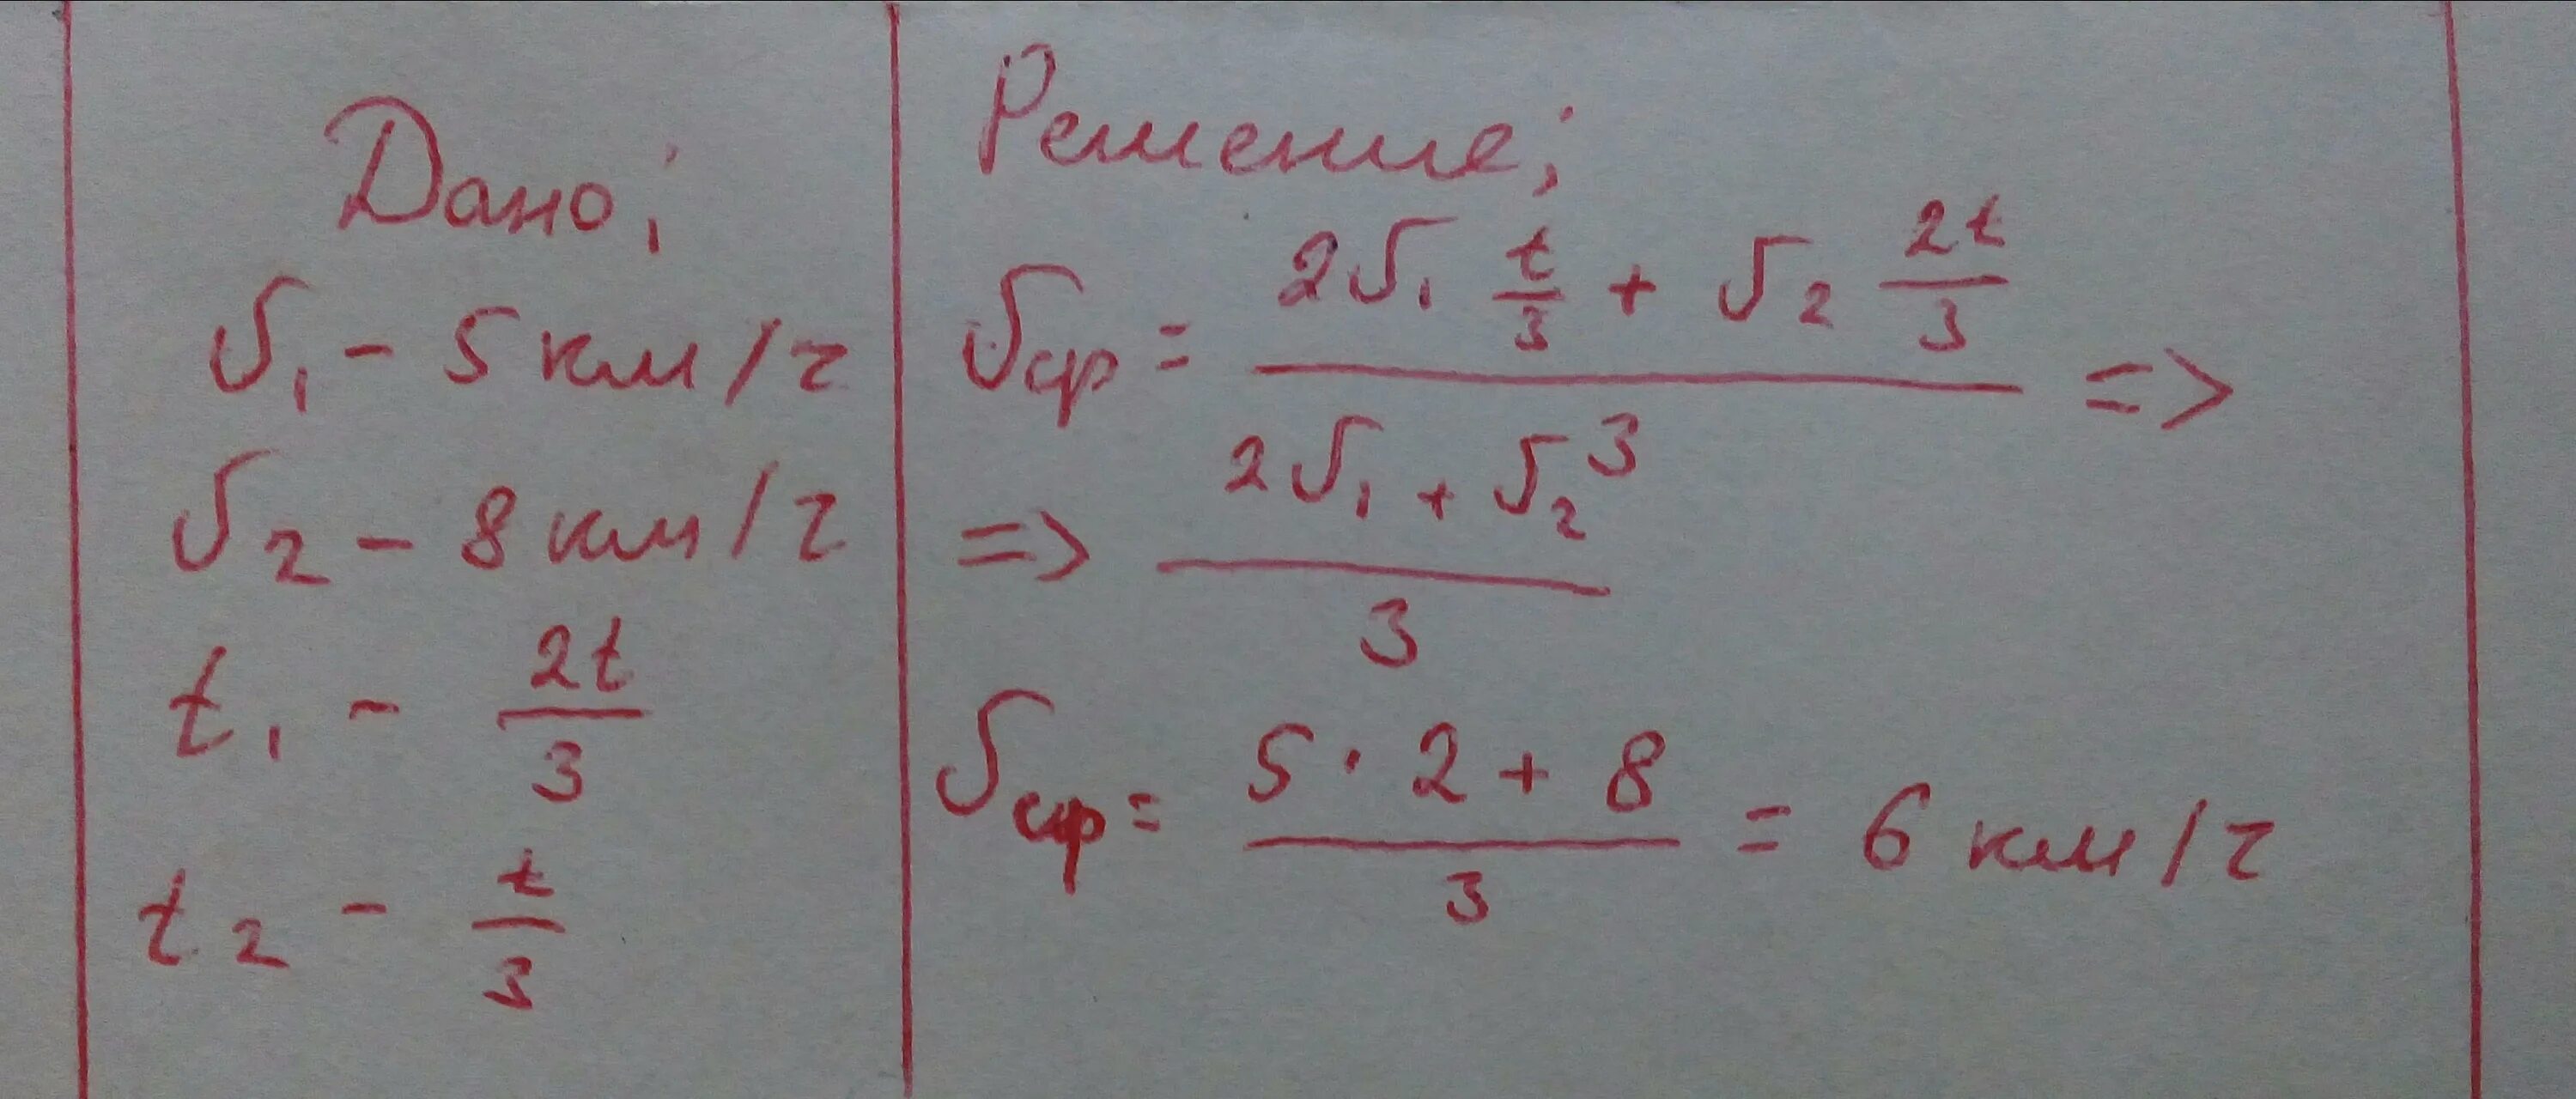 Дано:
υ₁ - 5 км/ч
υ₂ - 8 км/ч
t₁ - 2t/3
t₂ - t/3
Решение:
υср = (2υ₁ t/3 + υ₂ 2t/3) / 3 =>
=> (2υ₁ + υ₂) / 3
υср = (5 · 2 + 8) / 3 = 6 км/ч